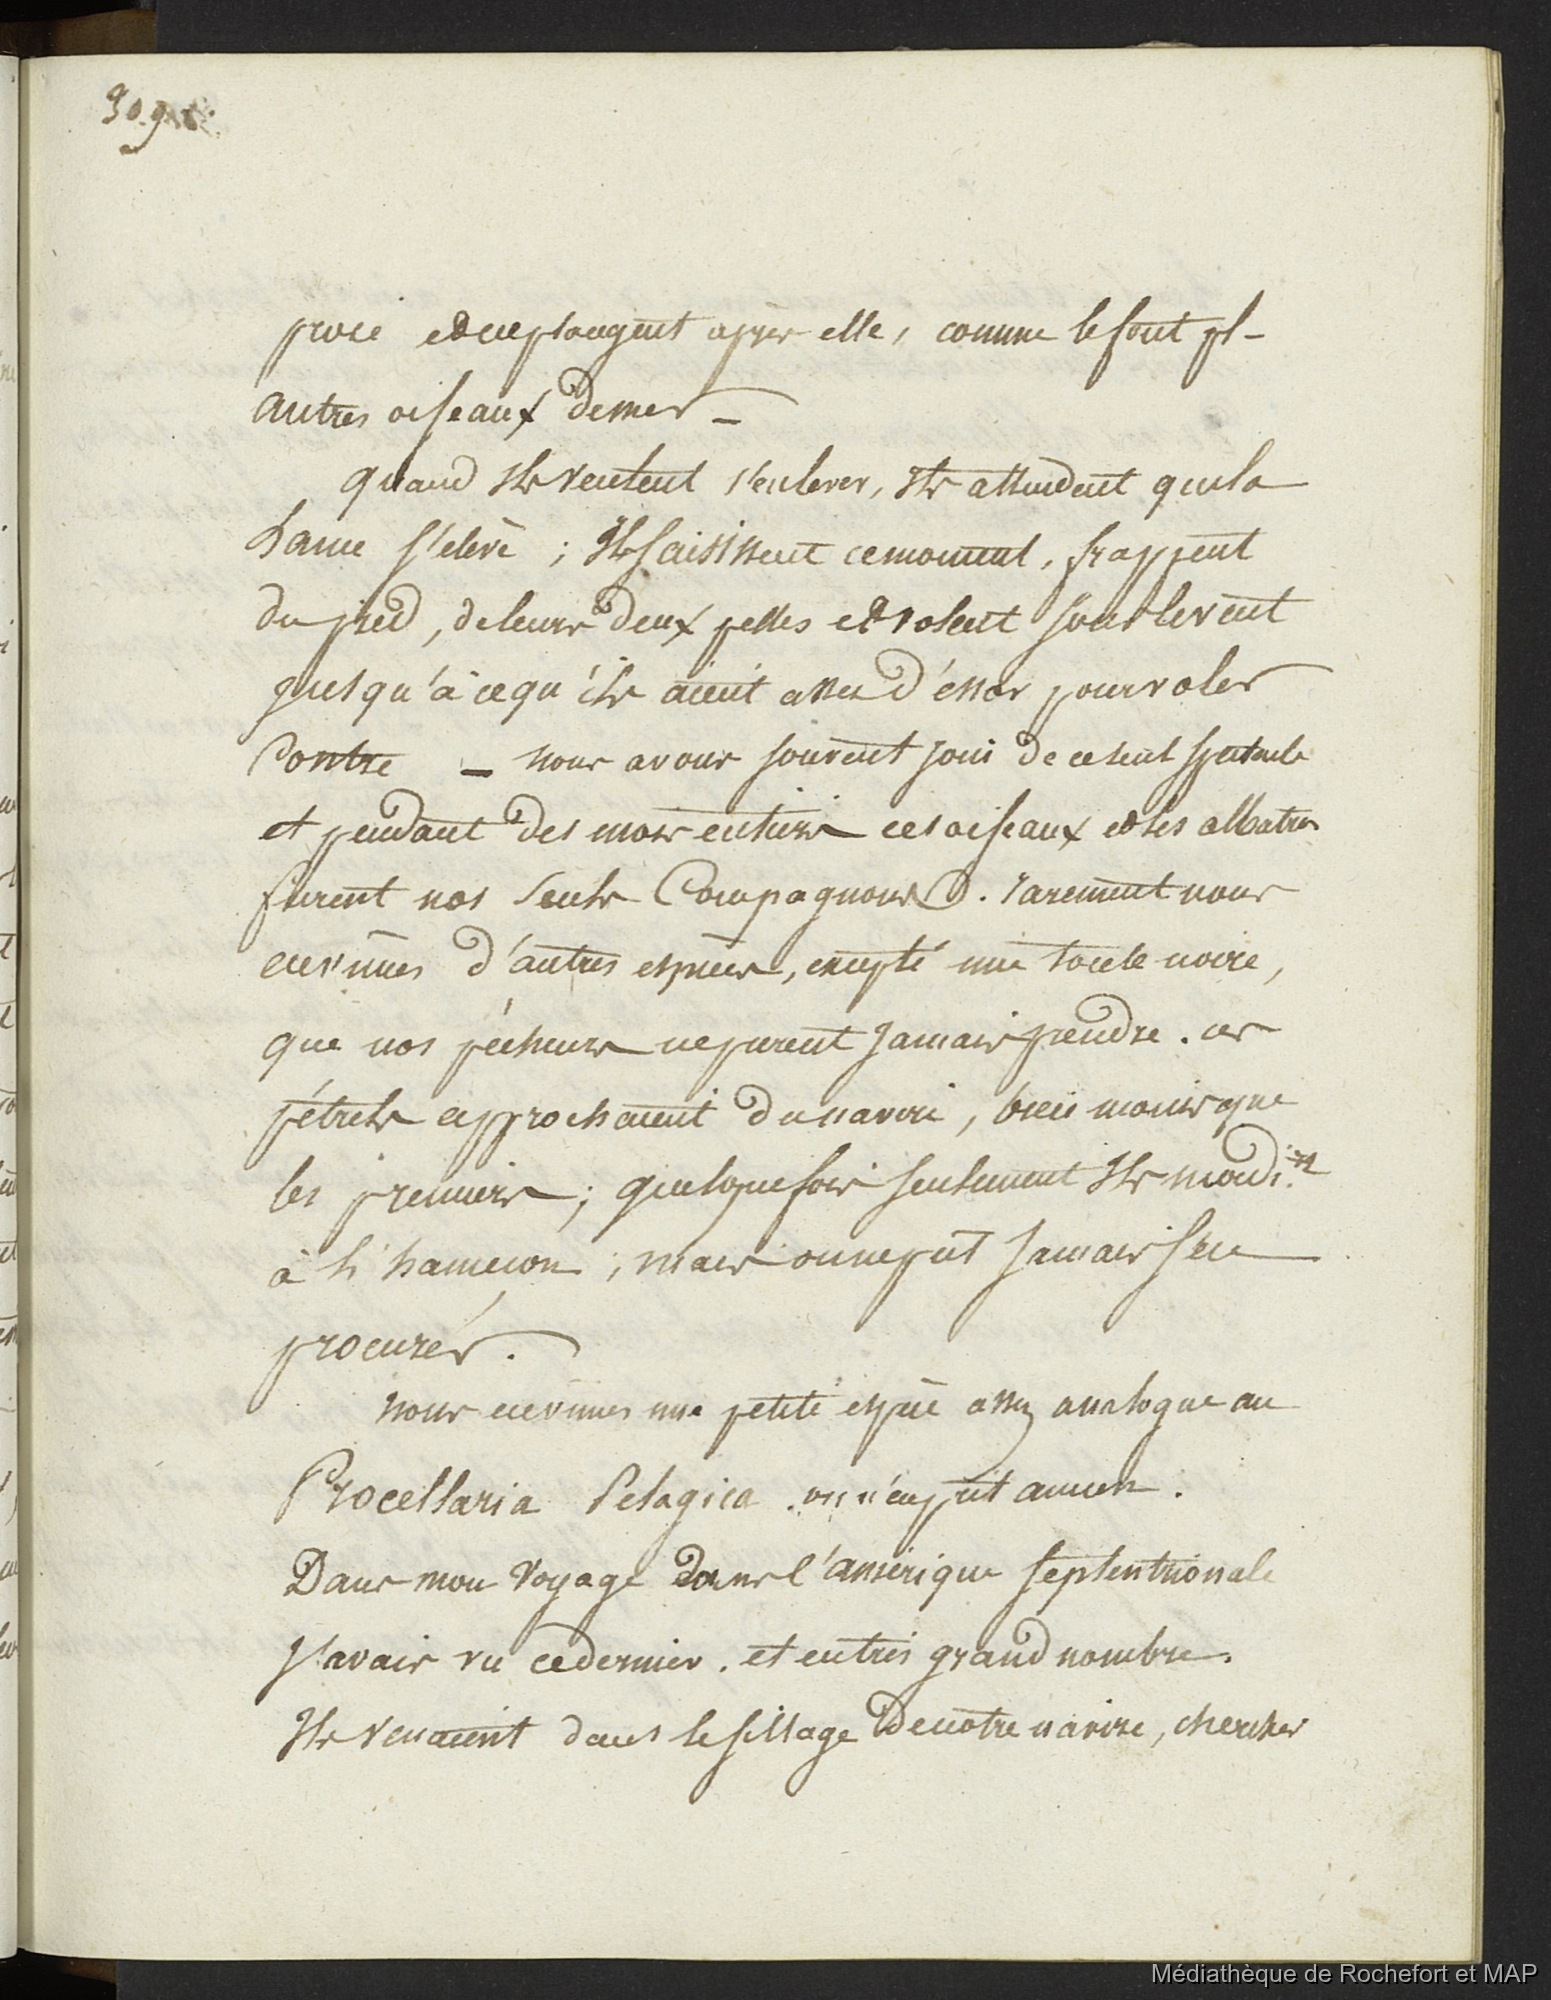 proie et ne plongent après elle, comme le font pl-
autres oiseaux de mer –
quand ils veulent s'enlever, ils attendent que la
Lame s'elève ; Ils saisissent ce moment, frappent
du pied, de leurs deux pattes et volent souvent
jusqu'à ce qu'ils aient assez d'éssor pour voler
Contre – nous avons souvent joui de ce seul spectacle
et pendant des mois entiers ces oiseaux et les albatros
furent nos seuls Compagnons. rarement nous
eumes d'autres espèces, excepté une noire,
que nos pécheurs ne purent jamais prendre. ces
pétrels approchaient du navire, bien moins que
les premiers ; quelquefois seulement Ils mordi.nt
à l'hameçon ; mais on ne put jamais s'en
procurér.
nous une petite espèce assez analogue au
Procellaria Pelagica. on n'en prit aucun.
Dans mon Voyage dans l'amérique septentrionale
J'avais vu ce dernier. et en très grand nombre.
Ils venaient dans le sillage de notre navire, chercher
Médiathèque de Rochefort et MAP